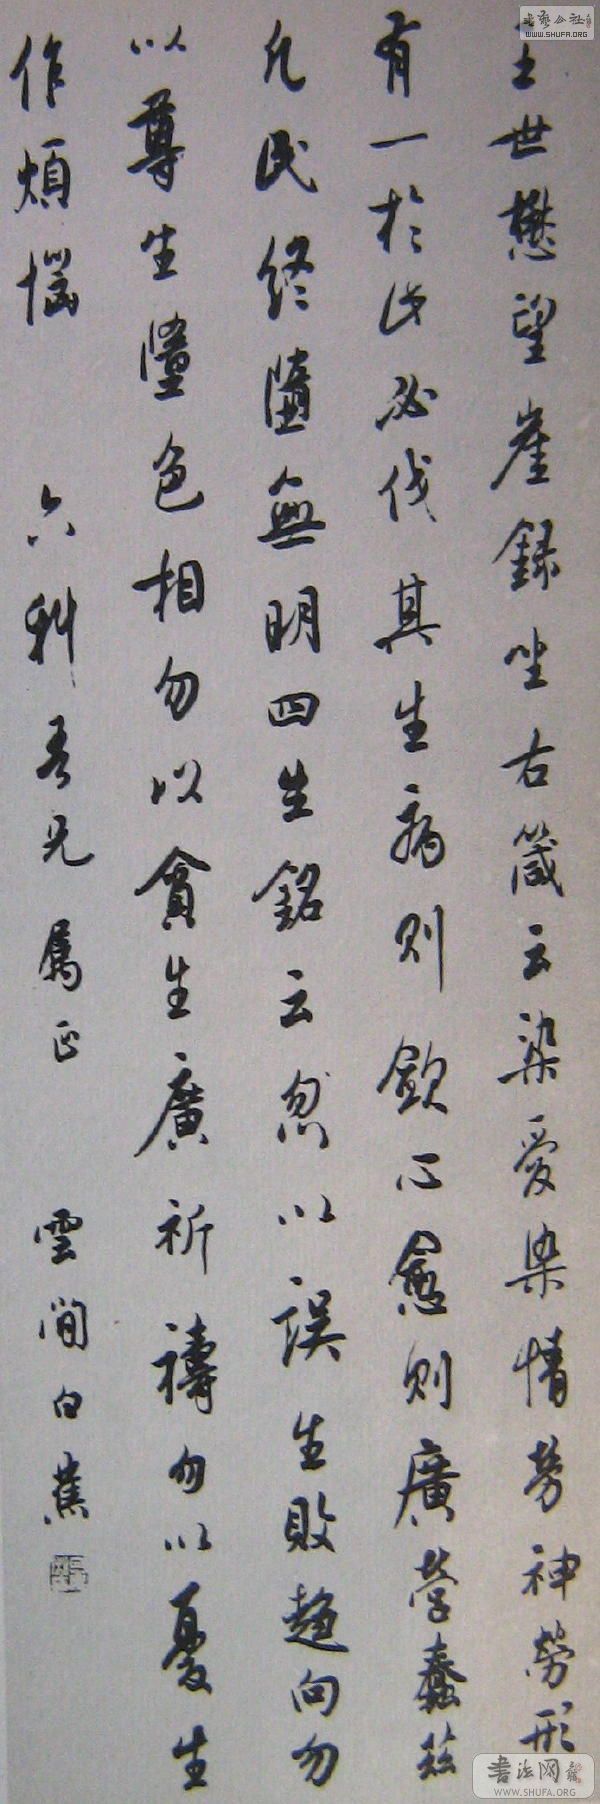 王世懋望崖錄坐右箴云染愛染情勞神勞形
有一於此必伐其生病則歛心愈則廣營蠢茲
凡民終墮無明四生銘云忽以誤生敗趣向勿
以尊生墮色相勿以貪生廣祈禱勿以憂生
作煩惱 六科吾兄屬正 雲間白蕉
書藝公社
WWW.SHUFA.ORG
書法网
WWW.SHUFA.ORG